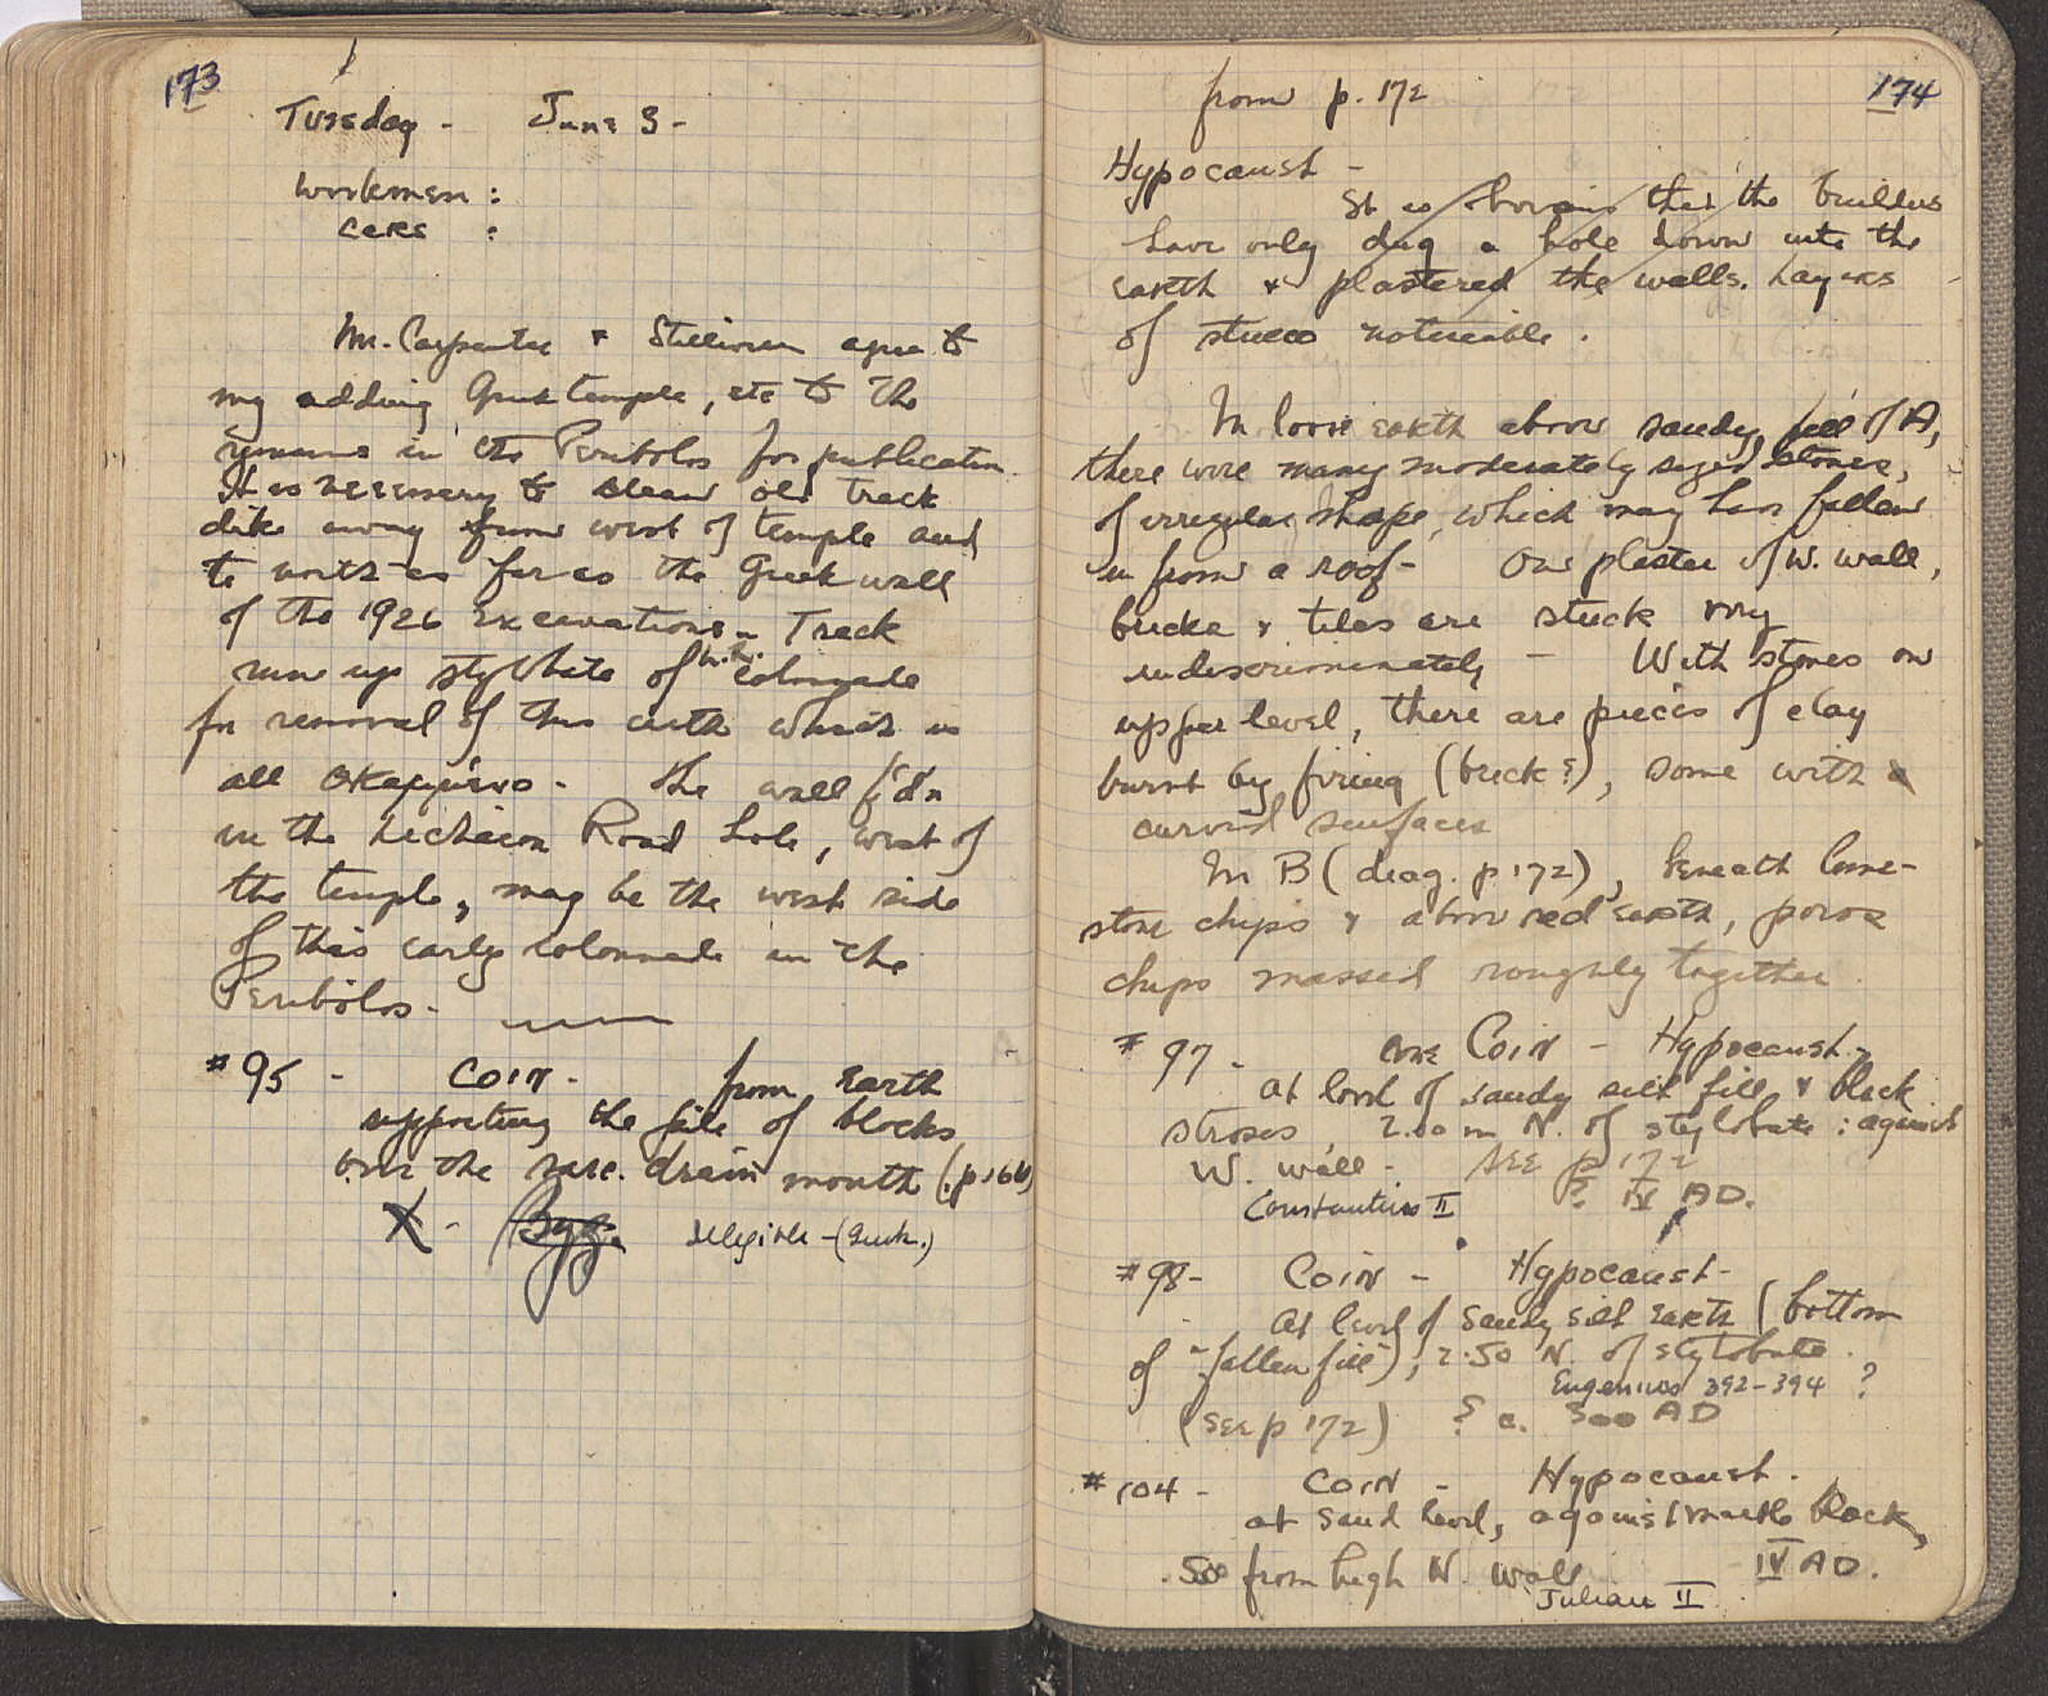 173
Tuesday - June 3 -
Workmen :
Cars :
Mr. Carpenter & Stillwell agree to
my adding Greek temple, etc to the
remains in the Peribolos for publication.
It is necessary to clear old track
dike away from west of temple and
to north as far as the Greek wall
of the 1926 Excavations - Track
run up stylobate of colonnade
for removal of this earth which is
all - The wall f'd'n
in the Lechaeon Road hole, west of
the temple, may be the west side
of this early colonnade in the
Peribolos -
#95 - Coin - from Earth
supporting the pile of blocks
over the drain mouth (p 166)
X - Byz. illegible - (Greek.)
174
from p. 172
Hypocaust -
It is obvious that the builders
have only dug a hole down into the
earth & plastered the walls. Layers
of stucco noticeable.
In loose earth above sandy fill of A,
there were many moderately sized stones,
of irregular shape, which may have fallen
in from a roof - On plaster of W. wall,
bricks & tiles are stuck very
indiscriminately - With stones on
upper level, there are pieces of clay
burnt by firing (brick?), some with
curved surfaces
In B (diag. p 172), beneath lime-
stone chips & above red earth, poros
chips massed roughly together.
#97 - one Coin - Hypocaust -
At level of sandy silt fill & black
stroses, 2.00 m N. of stylobate : against
W. wall - SEE p 172
Constantius II ? IV AD.
#98 - Coin - Hypocaust -
At level of sandy silt earth (bottom
of "fallen fill"), 2.50 N. of stylobate.
Eugenius 392-394 ?
(see p 172) ? c. 500 AD
#104 - Coin - Hypocaust.
at sand level, against marble block,
.50 from high N. wall IV AD.
Julian II